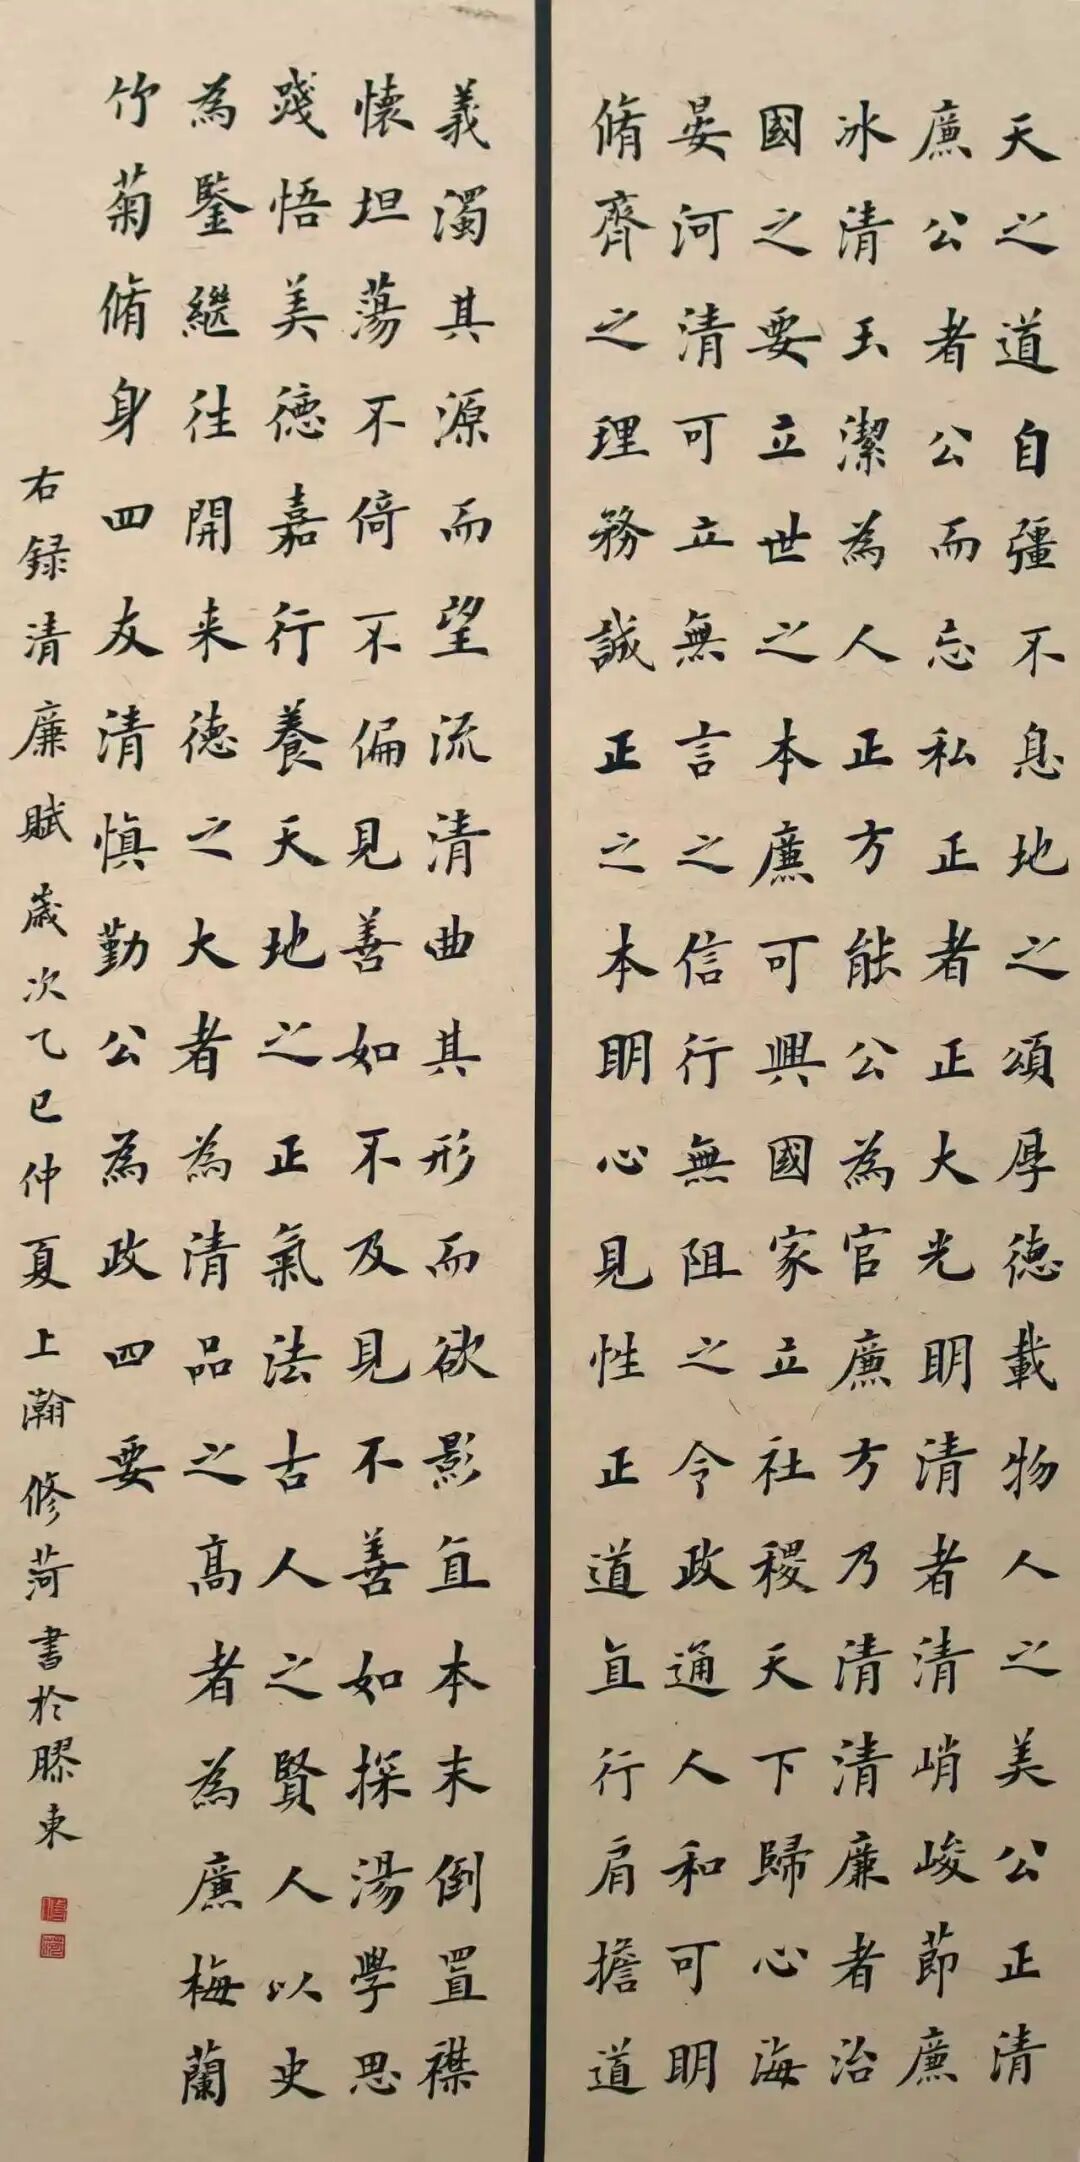 天之道自彊不息地之頌厚德載物人之美公正清
廉公者公而忘私正者正大光明清者清峭峻節廉
冰清玉潔為人正方能公為官廉方乃清清廉者治
國之要立世之本廉可興國家立社稷天下歸心海
晏河清可立無言之信行無阻之令政通人和可明
脩齊之理務誠正之本明心見性正道直行肩擔道
義濁其源而望流清曲其形而欲影直本末倒置襟
懷坦蕩不倚不偏見善如不及見不善如探湯學思
踐悟美德嘉行養天地之正氣法古人之賢人以史
為鑒繼往開来德之大者為清品之高者為廉梅蘭
竹菊脩身四友清慎勤公為政四要
右録清廉賦歲次乙巳仲夏上瀚修菏書於膠東